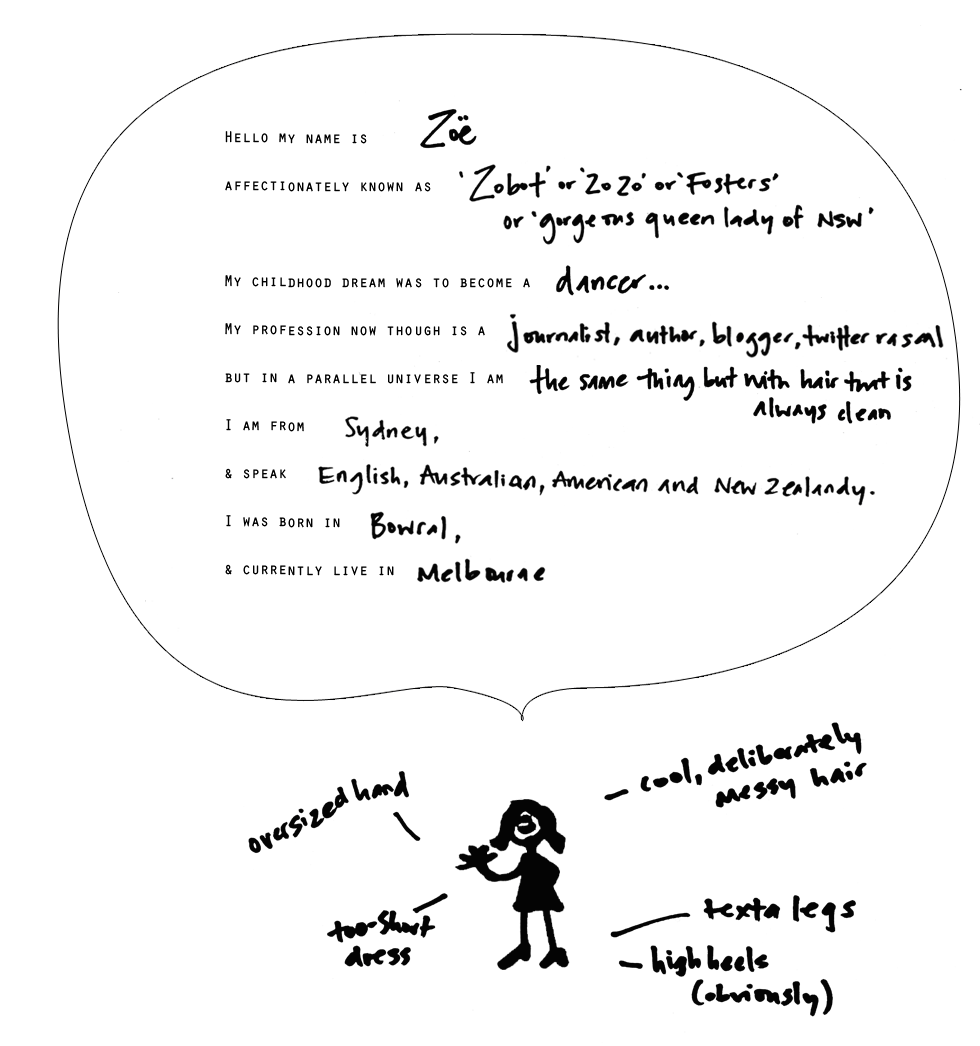 Hello my name is Zoë
affectionately known as 'Zobot' or 'Zo Zo' or 'Fosters'
or 'gorgeous queen lady of NSW'
My childhood dream was to become a dancer...
My profession now though is a journalist, author, blogger, twitter rascal
but in a parallel universe I am the same thing but with hair that is
always clean
I am from Sydney,
& speak English, Australian, American and New Zealandy.
I was born in Bowral,
& currently live in Melbourne
cool, deliberately
messy hair
oversized hand
too-short
dress
texta legs
high heels
(obviously)